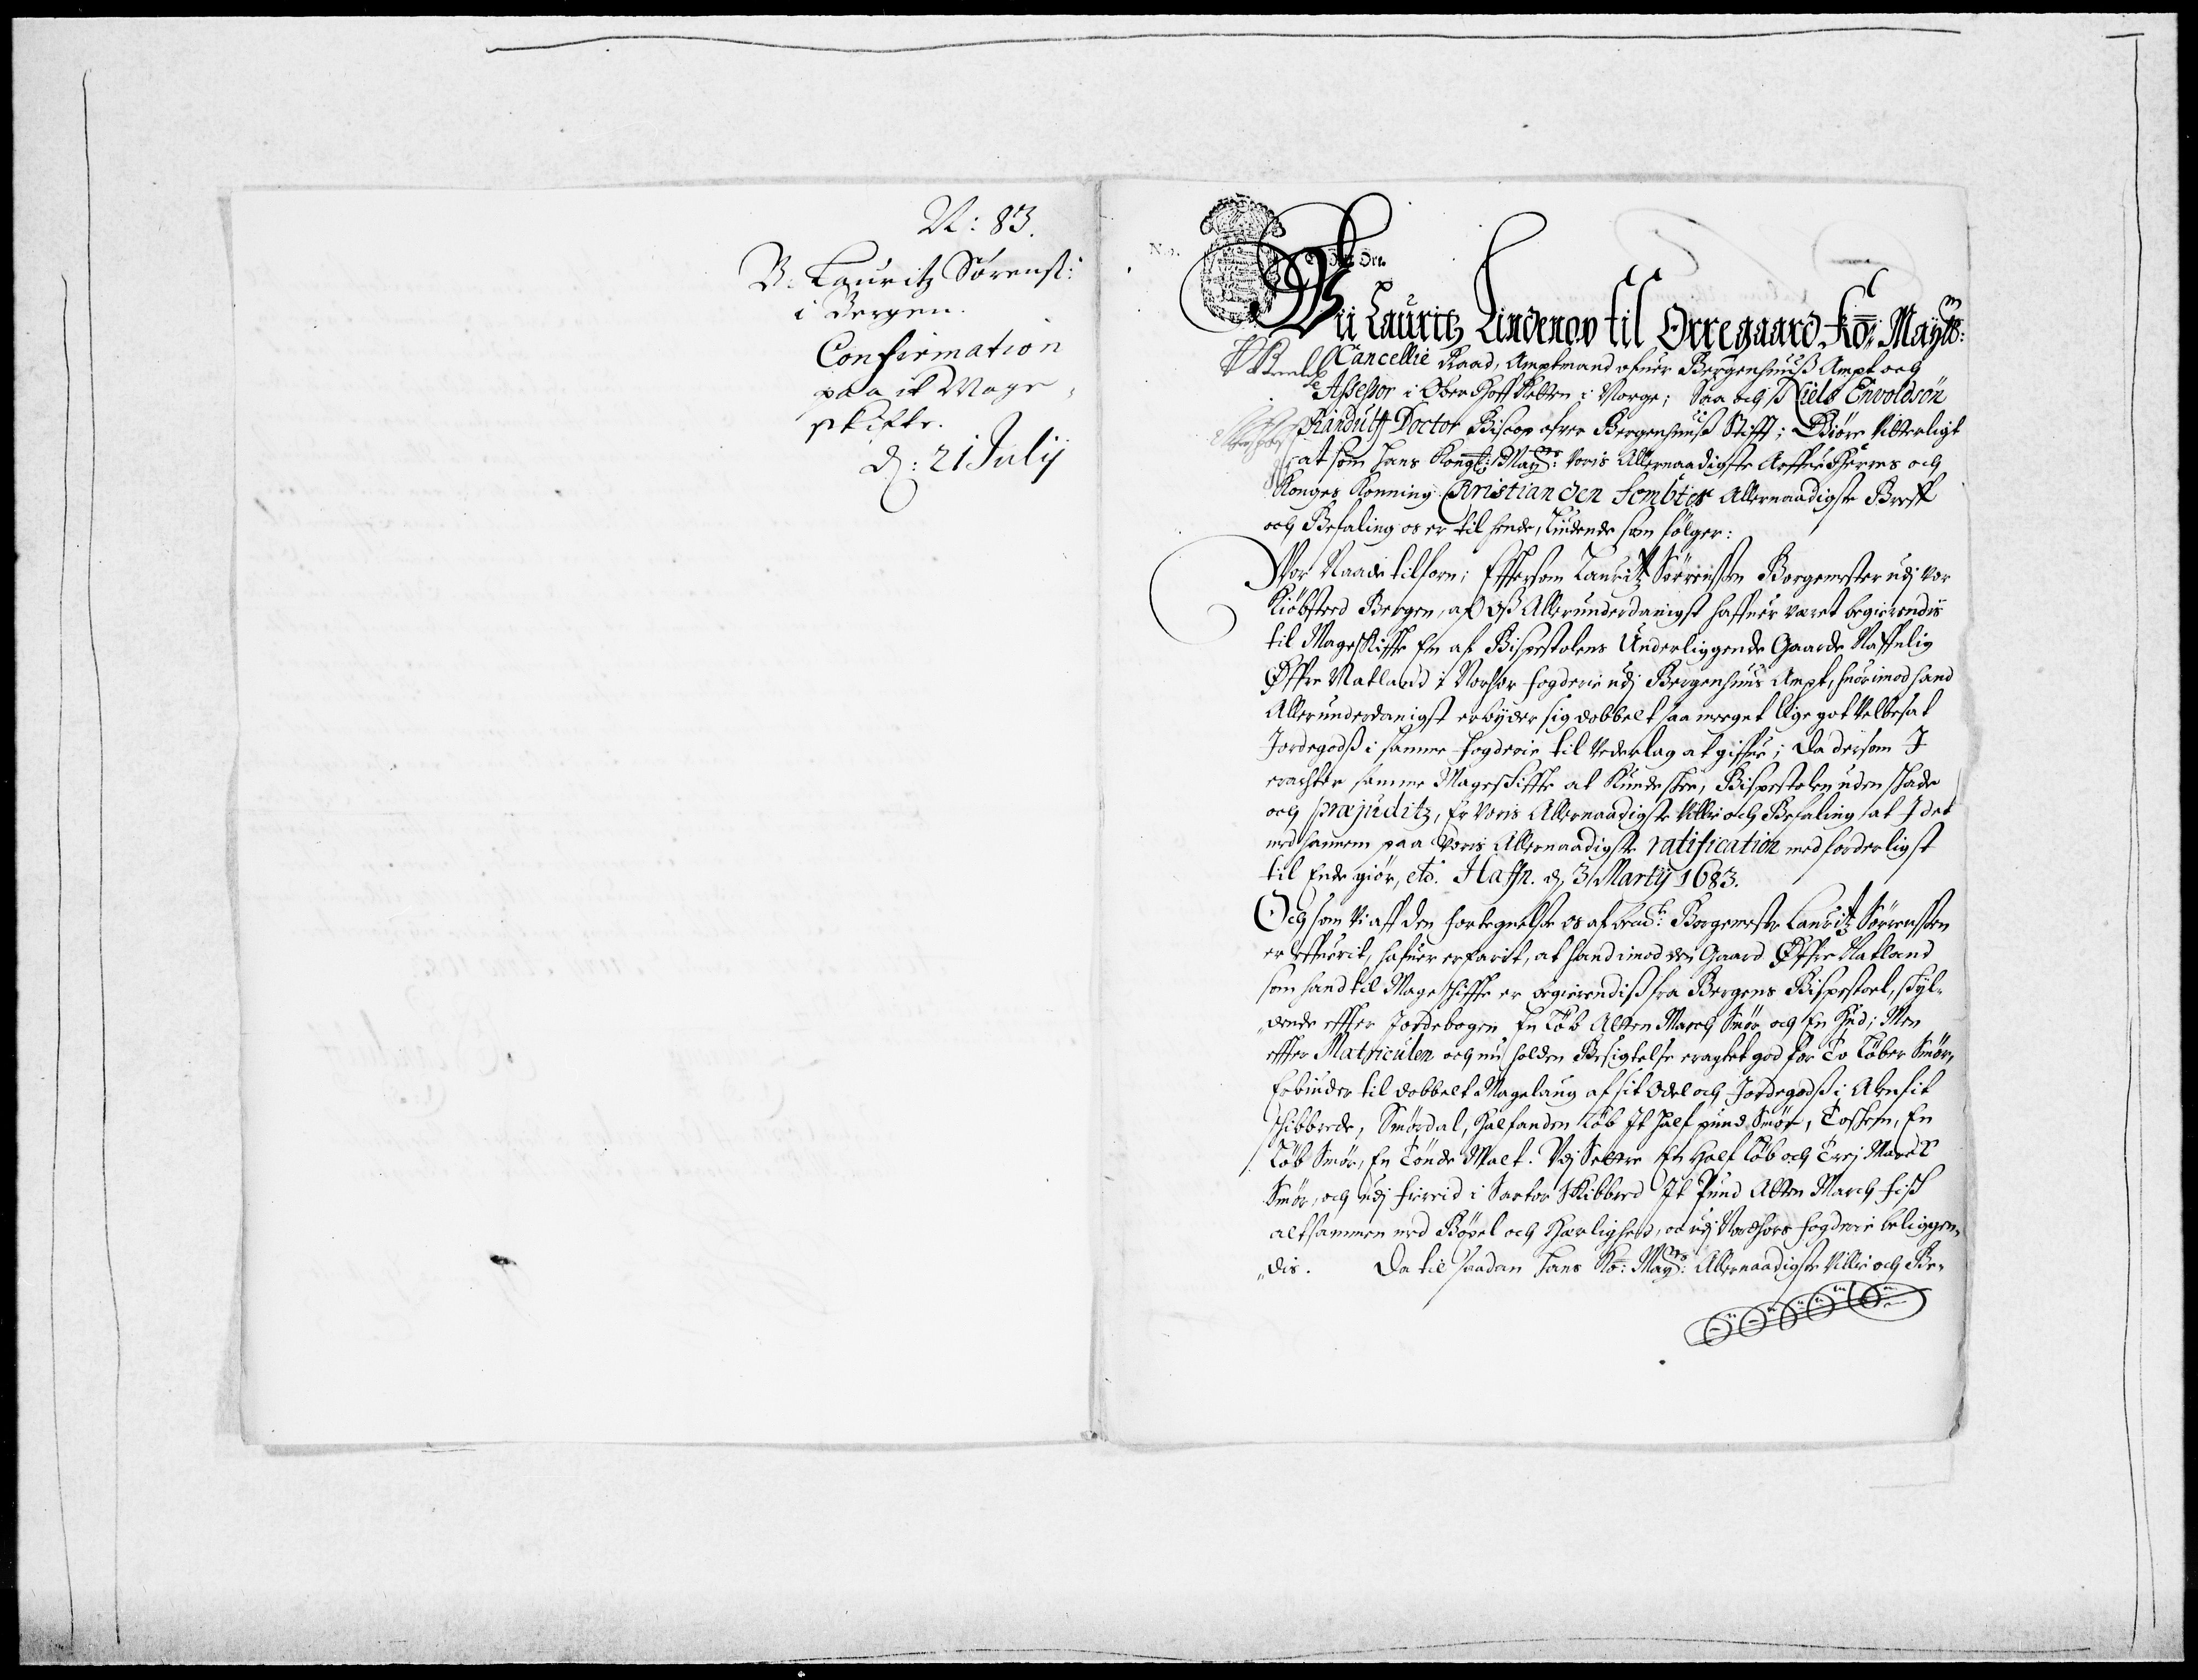 N: 83.
B. Lauritz Sørens:
i Bergen.
Confirmation
paa it Mage-
skifte.
d: 21 Julij
Vii Lauritz Lindenov til Ørregaard Ko: Mayts:
Cancellie Raad, Amptmand ofuer Bergenhuuß Ampt och
Assessor i Ober Hoff Retten i Norge; Saa och Niels Envoldsön
Randulff Doctor Biscop ofver Bergenhuuß Stifft; Giøre Vitterligt
at som Hans Kongl: Mayts: Voris Allernaadigste Arffue Herres och
Konges Konning Christian den Fembtes Allernaadigste Breff
och Befaling os er til hende, Liudende som følger:
Vor Naade tilforn; Efftersom Lauritz Sørrensen Borgemester udj vor
Kiøbsted Bergen, af oß Allerunderdanigst haffuer veret begierendis
til Mageskiffte En af Bispestolens Underliggende Gaarde Naffnlig
Øffre Natland i Norhor fogderie udj Bergenhuus Ampt, huorimod hand
Allerunderdanigst erbyder sig dobbelt saa meget lige got Velbesat
Jordegodß i samme fogderie til Vederlag at giffue; Da dersom I
erachter samme Mageskiffte at kunde skee, Bispestolen uden skade
och præjuditz, Er voris Allernaadigste Villie och Befaling, at I det
med hannem paa Voris Allernaadigste ratification med forderligst
til Ende giør, etc. Haffn. d, 31 Martij 1683.
Och som Vi aff den fortegnelse os af bem:te Borgemester Lauritz Sørrensen
er leffuerit, hafuer erfarit, at hand imod den Gaard Øffre Natland
som hand til Mageskiffte er begierendiß fra Bergens Bispestoel, skyl-
dende effter Jordebogen En Løb Atten March Smør och En Hud; Men
effter Matriculen och nu holden Besigtelse eragtet god for To Løber Smør,
Erbiuder til dobbelt Magelaug af sit Odel och Jordegodß i Alenfit
skibbrede, Smørdal, Halfanden Løb It half pund Smør, Toskem, En
Løb Smør, En Tønde Malt. Vdj Selere En Half Løb och Trej March
Smør, och udj i Sartor Skibbred It Pund Atten March fisk
altsammen med Bøxel och Herlighed, oc udj Nordhors fogderie beliggen-
dis. Da til saadan Hans Ko: Mayts: Allernaadigste Villie och Be-